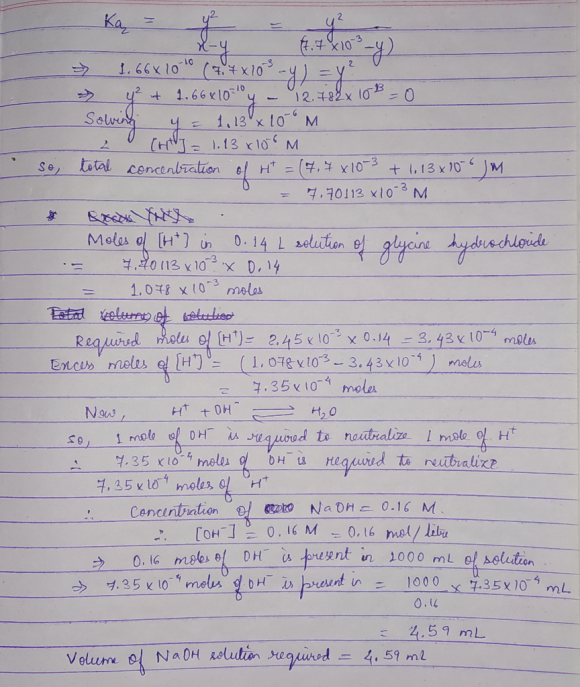 Ka₂ = y² / (x-y) = y² / (7.7×10⁻³-y)
⇒ 1.66×10⁻¹⁰ (7.7×10⁻³-y) = y²
⇒ y² + 1.66×10⁻¹⁰y - 12.782×10⁻¹³ = 0
Solving y = 1.13×10⁻⁶ M
∴ [H⁺] = 1.13×10⁻⁶ M
So, total concentration of H⁺ = (7.7×10⁻³ + 1.13×10⁻⁶) M
= 7.70113×10⁻³ M
Excess [H⁺]
Moles of [H⁺] in 0.14 L solution of glycine hydrochloride
= 7.70113×10⁻³ × 0.14
= 1.078×10⁻³ moles
Total volume of solution
Required moles of [H⁺] = 2.45×10⁻³ × 0.14 = 3.43×10⁻⁴ moles
Excess moles of [H⁺] = (1.078×10⁻³ - 3.43×10⁻⁴) moles
= 7.35×10⁻⁴ moles
Now, H⁺ + OH⁻ ⇌ H₂O
So, 1 mole of OH⁻ is required to neutralize 1 mole of H⁺
∴ 7.35×10⁻⁴ moles of OH⁻ is required to neutralize
7.35×10⁻⁴ moles of H⁺
∴ Concentration of NaOH = 0.16 M.
∴ [OH⁻] = 0.16 M = 0.16 mol/litre
⇒ 0.16 moles of OH⁻ is present in 1000 mL of solution.
⇒ 7.35×10⁻⁴ moles of OH⁻ is present in = 1000 / 0.16 × 7.35×10⁻⁴ mL
= 4.59 mL
Volume of NaOH solution required = 4.59 mL